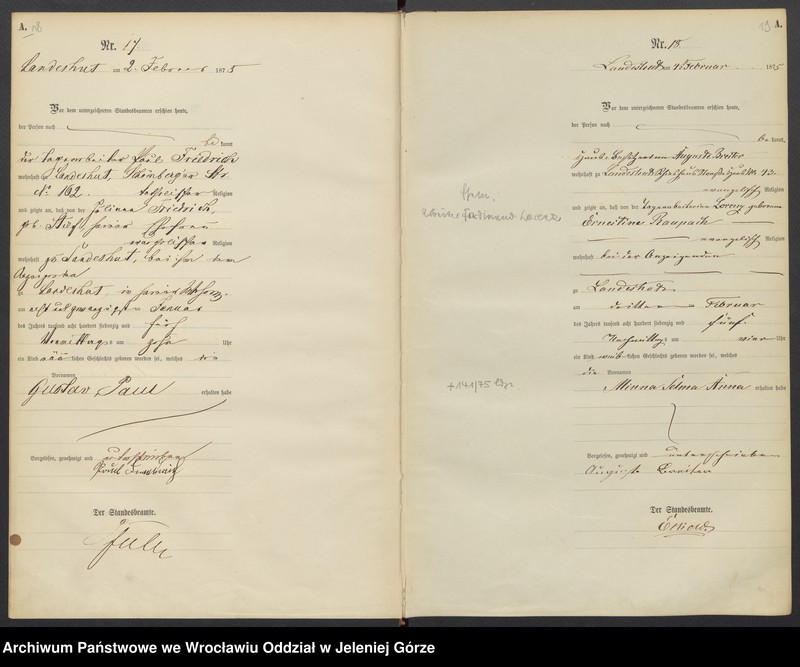 A. 18
Nr. 17
Landeshut am 2. Februar 1875
Vor dem unterzeichneten Standesbeamten erschien heute,
der Person nach
be kannt
der Tagearbeiter Paul Friedrich
wohnhaft zu Landeshut, Str.
No 162. katholischer Religion
und zeigte an, daß von der Friedrich,
geb. seiner Ehefrau
evangelischer Religion
wohnhaft zu Landeshut, bei ihm dem
zu Landeshut, in seiner
am acht und zwanzigsten Januar
des Jahres tausend acht hundert siebenzig und fünf
Vormittags um zehn Uhr
ein Kind lichen Geschlechts geboren worden sei, welches
Vornamen
Gustav Paul erhalten habe
Vorgelesen, genehmigt und unterschrieben
Paul Friedrich
Der Standesbeamte.
19 A.
Nr. 18.
Landeshut am 4. Februar 1875
Vor dem unterzeichneten Standesbeamten erschien heute,
der Person nach
be kannt,
Auguste Breiter
wohnhaft zu Landeshut No 43.
evangelisch Religion
und zeigte an, daß von der Tagearbeiterin Lorenz geborene
Ernestine Raupach
evangelisch Religion
wohnhaft bei der Anzeigenden
zu Landeshut
am dritten Februar
des Jahres tausend acht hundert siebenzig und fünf
Nachmittags um vier Uhr
ein Kind weib lichen Geschlechts geboren worden sei, welches
die Vornamen
Minna Selma Anna erhalten habe
Vorgelesen, genehmigt und unterschrieben
Auguste Breiter
Der Standesbeamte.
Ferdinand Lorenz
+141/75
Archiwum Państwowe we Wrocławiu Oddział w Jeleniej Górze